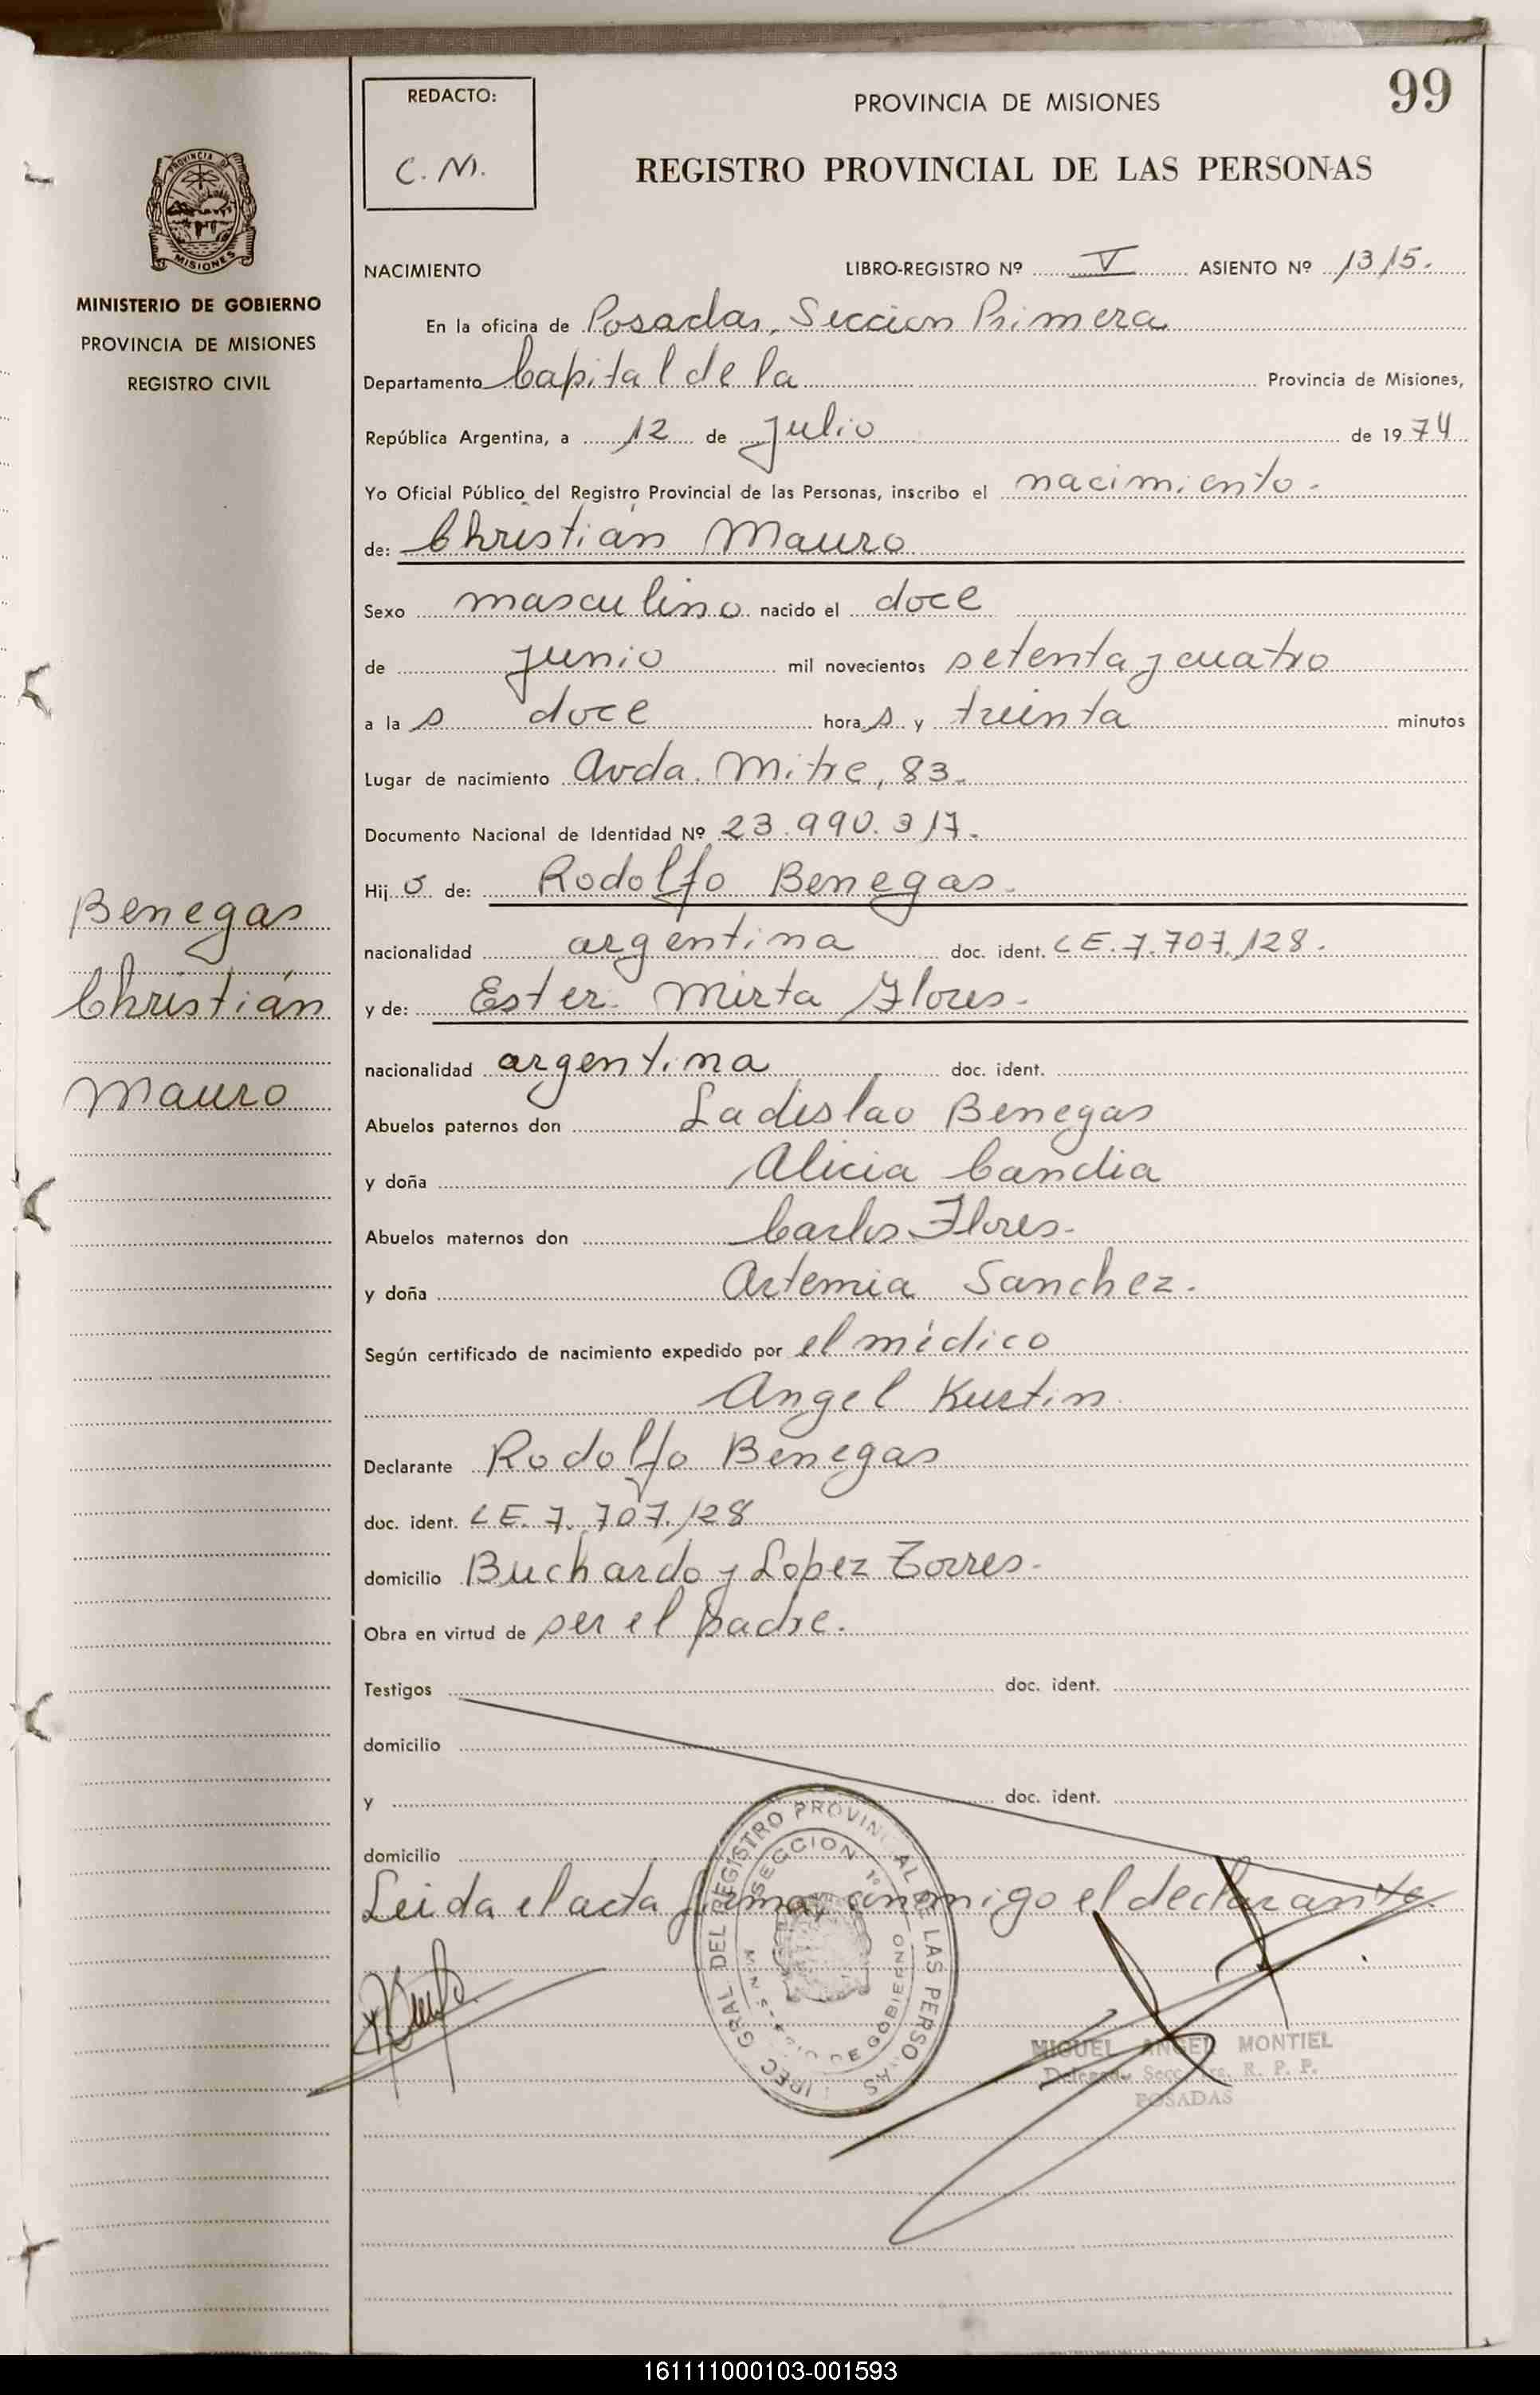 99
REDACTO:
C. M.
PROVINCIA DE MISIONES
REGISTRO PROVINCIAL DE LAS PERSONAS
PROVINCIA DE
MISIONES
MINISTERIO DE GOBIERNO
PROVINCIA DE MISIONES
REGISTRO CIVIL
NACIMIENTO LIBRO-REGISTRO Nº V ASIENTO Nº 1315.
En la oficina de Posadas, Seccion Primera
Departamento Capital de la Provincia de Misiones,
República Argentina, a 12 de Julio de 1974
Yo Oficial Público del Registro Provincial de las Personas, inscribo el nacimiento.
de: Christián Mauro
Sexo masculino nacido el doce
de junio mil novecientos setenta y cuatro
a la s doce hora s y treinta minutos
Lugar de nacimiento Avda. Mitre, 83.
Documento Nacional de Identidad Nº 23.990.317.
Hij o de: Rodolfo Benegas.
nacionalidad argentina doc. ident. LE. 7.707.128.
y de: Ester Mirta Flores.
nacionalidad argentina doc. ident.
Abuelos paternos don Ladislao Benegas
y doña Alicia Candia
Abuelos maternos don Carlos Flores.
y doña Artemia Sanchez.
Según certificado de nacimiento expedido por el médico
Angel Kustin
Declarante Rodolfo Benegas
doc. ident. LE. 7.707.128
domicilio Buchardo y Lopez Torres.
Obra en virtud de ser el padre.
Testigos doc. ident.
domicilio
y doc. ident.
domicilio
Leida el acta firma, conmigo el declarante.
Benegas
Christián
Mauro
DIREC. GRAL. DEL REGISTRO PROVINCIAL DE LAS PERSONAS
SECCION 1º
MINISTERIO DE GOBIERNO
MIGUEL ANGEL MONTIEL
R. P. P.
POSADAS
161111000103-001593